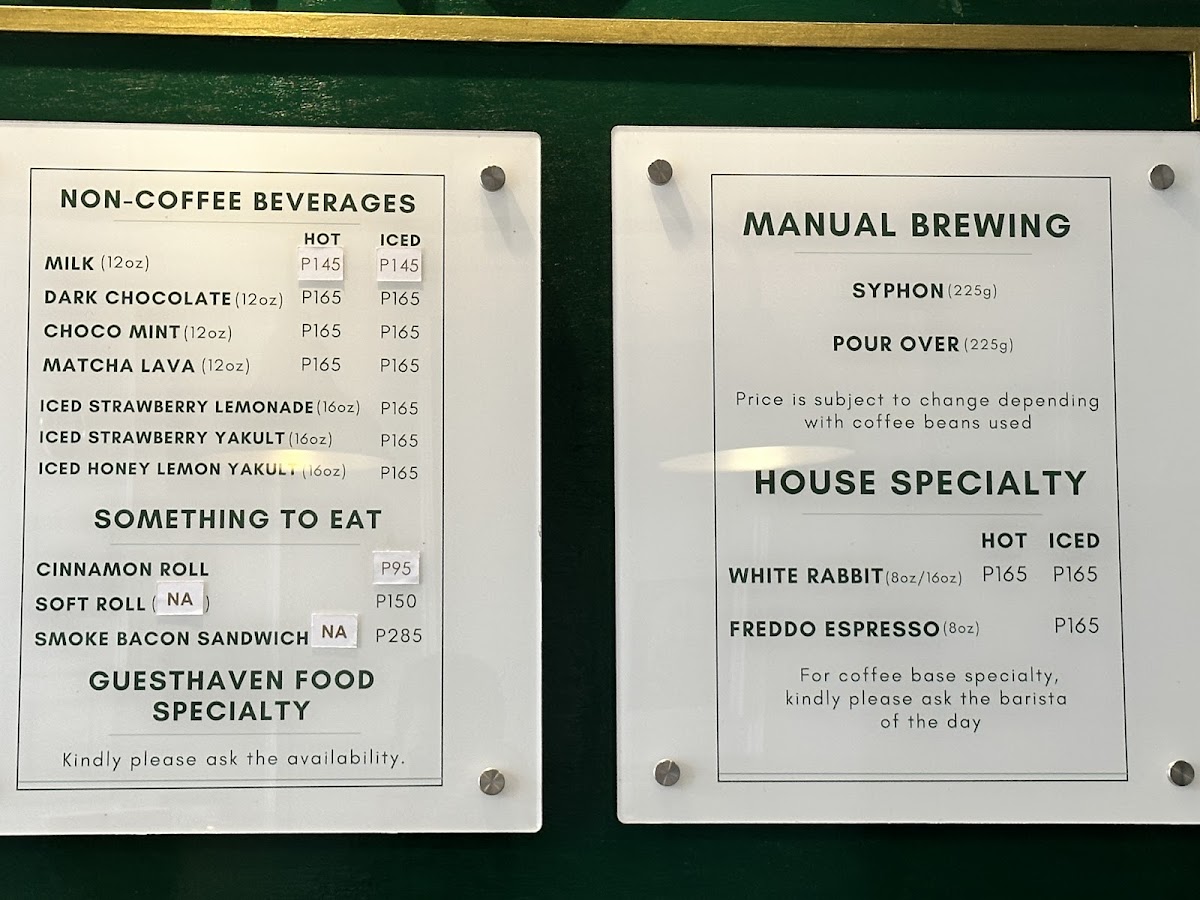 NON-COFFEE BEVERAGES
HOT ICED
MILK (12oz) P145 P145
DARK CHOCOLATE (12oz) P165 P165
CHOCO MINT (12oz) P165 P165
MATCHA LAVA (12oz) P165 P165
ICED STRAWBERRY LEMONADE (16oz) P165
ICED STRAWBERRY YAKULT (16oz) P165
ICED HONEY LEMON YAKULT (16oz) P165
SOMETHING TO EAT
CINNAMON ROLL P95
SOFT ROLL ( NA ) P150
SMOKE BACON SANDWICH NA P285
GUESTHAVEN FOOD
SPECIALTY
Kindly please ask the availability.
MANUAL BREWING
SYPHON (225g)
POUR OVER (225g)
Price is subject to change depending
with coffee beans used
HOUSE SPECIALTY
HOT ICED
WHITE RABBIT (8oz/16oz) P165 P165
FREDDO ESPRESSO (8oz) P165
For coffee base specialty,
kindly please ask the barista
of the day